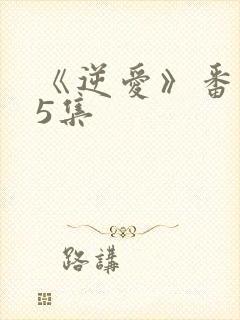 《逆愛》番
5集
路講